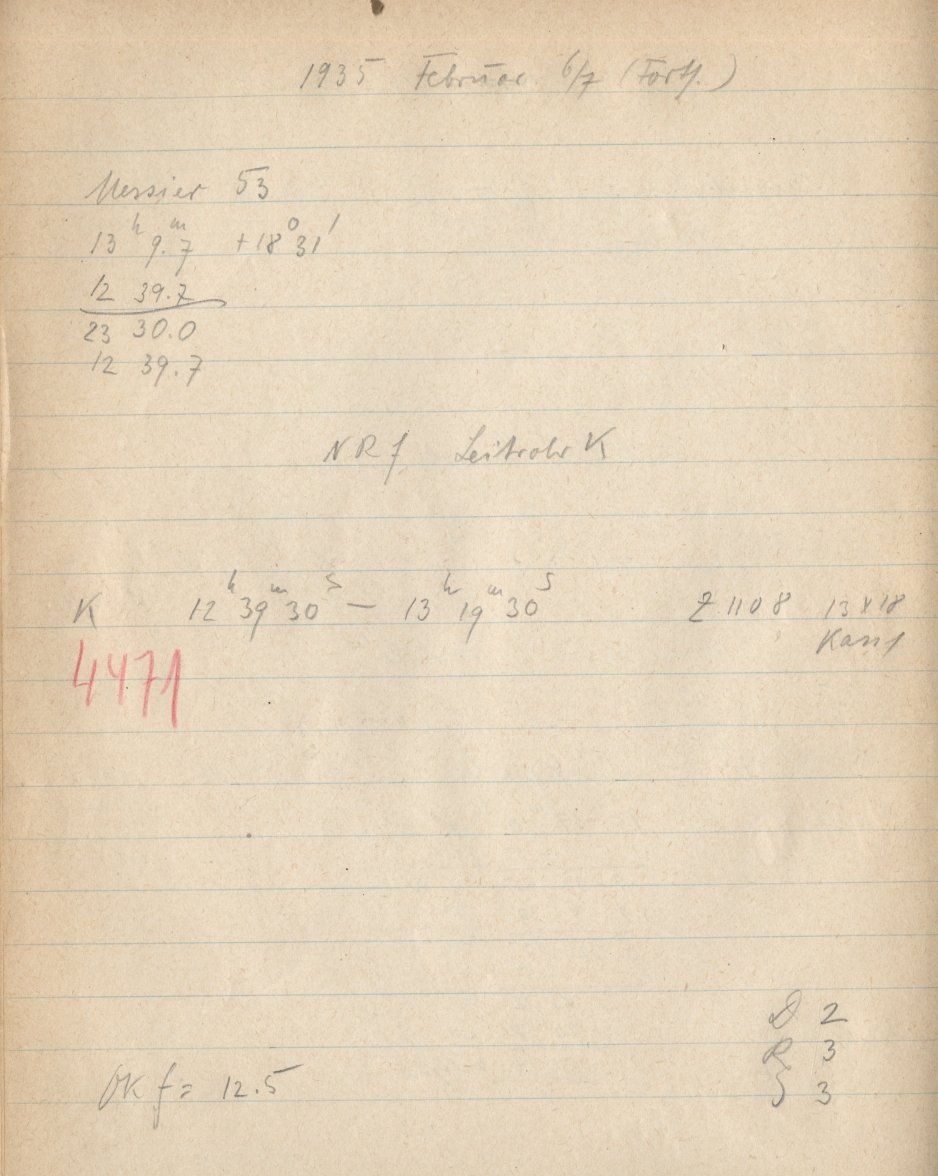 1935 Februar 6/7 (Forts.)
Messier 53
13ʰ 9.ᵐ7 +18°31'
12 39.7
23 30.0
12 39.7
NRf Leitrohr K
K 12ʰ39ᵐ30ˢ – 13ʰ19ᵐ30ˢ Z 1108 13x18
Kass 1
4471
OK f = 12.5
D 2
R 3
S 3